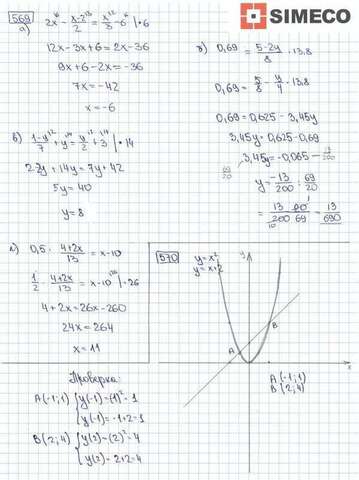 SIMECO
569
а) 2x⁶ - x-2¹³/2 = x¹²/3 - 6⁶ | · 6
12x - 3x + 6 = 2x - 36
9x + 6 - 2x = -36
7x = -42
x = -6
б) 1-y¹²/7 + y¹⁴ = y¹²/2 + 3¹⁴ | · 14
2-2y + 14y = 7y + 42
5y = 40
y = 8
0,69 = 5-2y/8 · 13.8
0,69 = 5/8 - y/4 · 13.8
0,69 = 0,625 - 3,45y
3,45y = 0,625 - 0,69
3,45y = -0,065 - 13/200
69/20
y = -13/200 : 69/20
= 13 · 20¹/200 · 69 = 13/690
10
0,5 · 4+2x/13 = x-10
1/2 · 4+2x/13 = x-10²⁶ | · 26
4 + 2x = 26x - 260
24x = 264
x = 11
570
y = x²
y = x+2
y
B
A
x
A (-1; 1)
B (2; 4)
Проверка
A (-1; 1) { y(-1) = (-1)² = 1
y(-1) = -1+2 = 1
B (2; 4) { y(2) = (2)² = 4
y(2) = 2+2 = 4